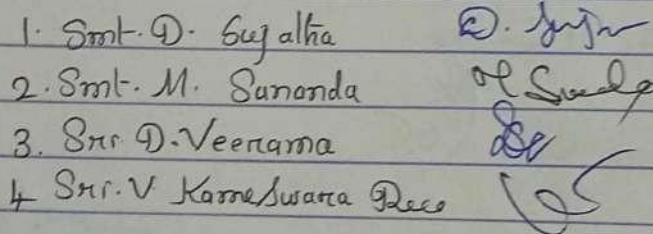 1. Smt. D. Sujatha D.
2. Smt. M. Sunanda
3. Sri D. Veerama
4 Sri. V Kameswara Rao